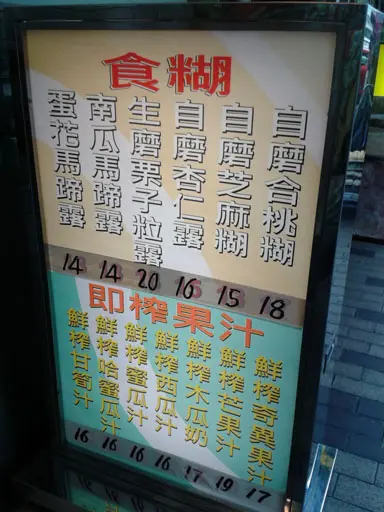 食糊
自磨合桃糊
自磨芝麻糊
自磨杏仁露
生磨栗子粒露
南瓜馬蹄露
蛋花馬蹄露
14 14 20 16 15 18
即榨果汁
鮮榨奇異果汁
鮮榨芒果汁
鮮榨木瓜奶
鮮榨西瓜汁
鮮榨蜜瓜汁
鮮榨哈蜜瓜汁
鮮榨甘筍汁
16 16 16 16 17 19 17